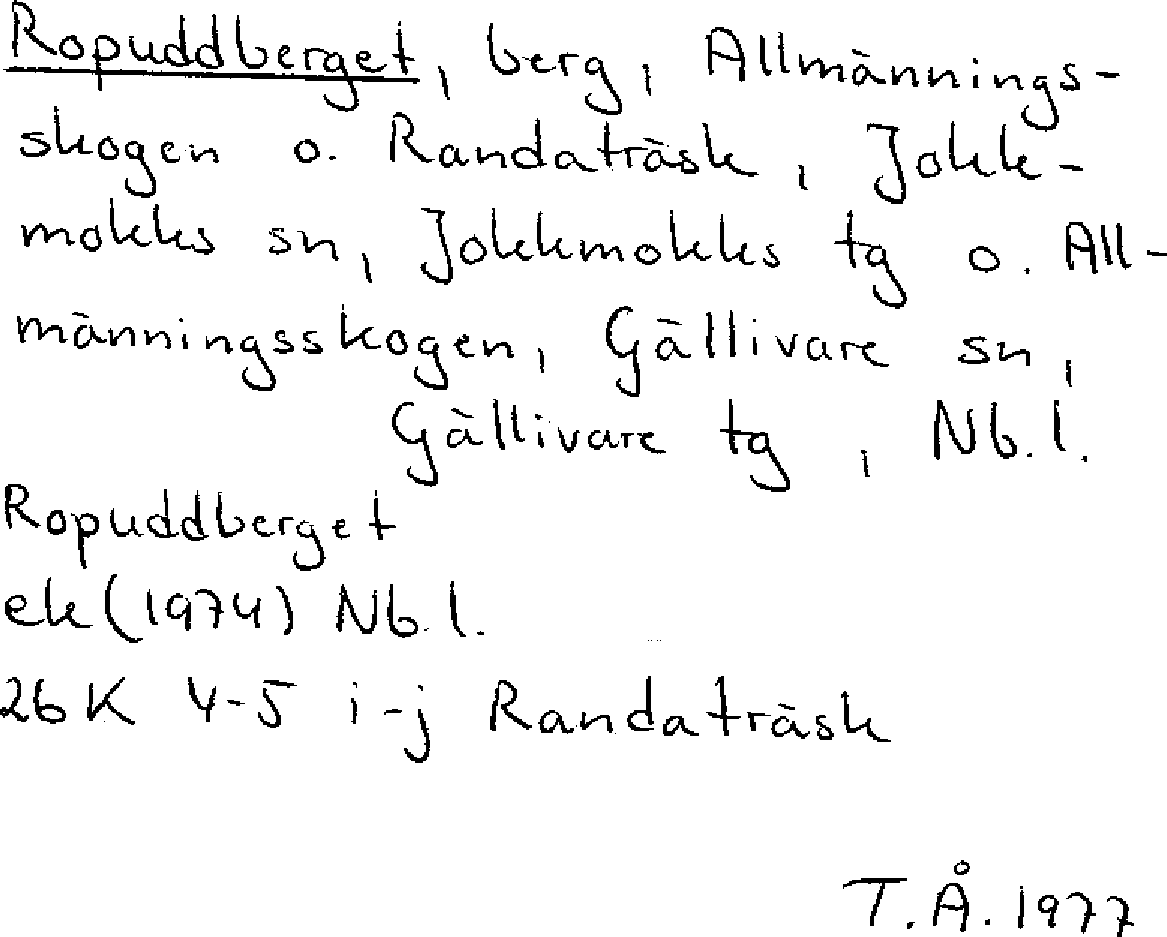 Ropuddberget, berg, Allmännings-
skogen o. Randaträsk, Jokk-
mokks sn, Jokkmokks tg o. All-
männingsskogen, Gällivare sn,
Gällivare tg, Nb. l.
Ropuddberget
ek (1974) Nb. l.
26 K 4-5 i-j Randaträsk
T. Å. 1977